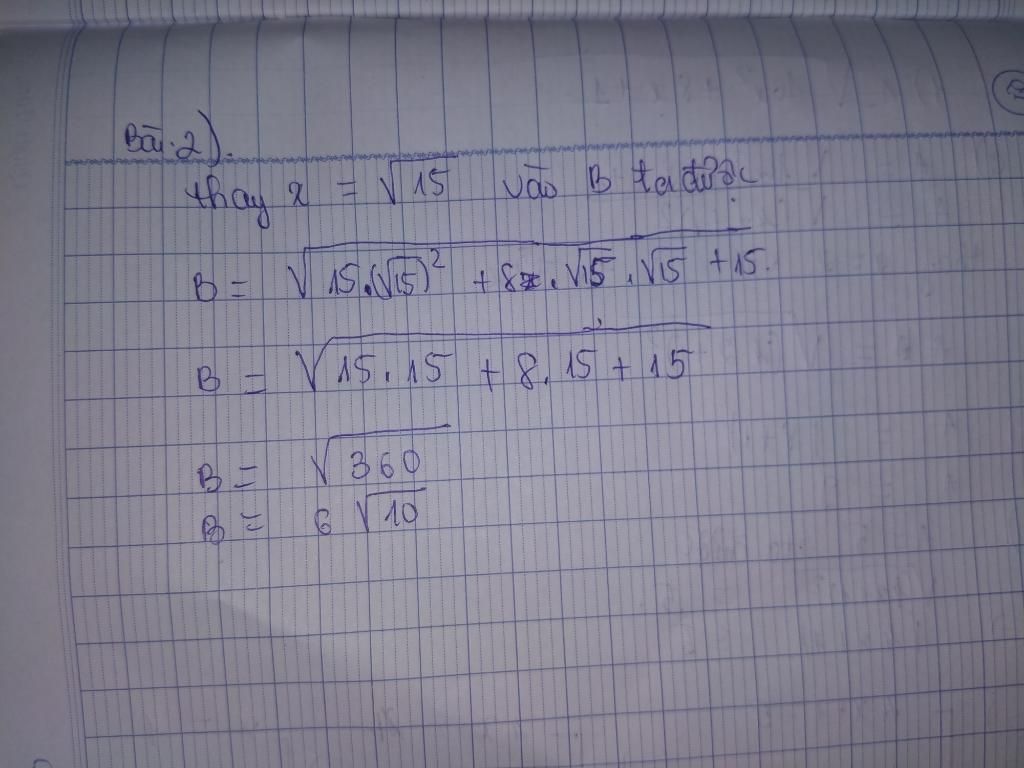 Bài.2).
thay x = √15 vào B ta được
B = √(15.(√15)² + 8.√15.√15 + 15
B = √15.15 + 8.15 + 15
B = √360
B = 6√10